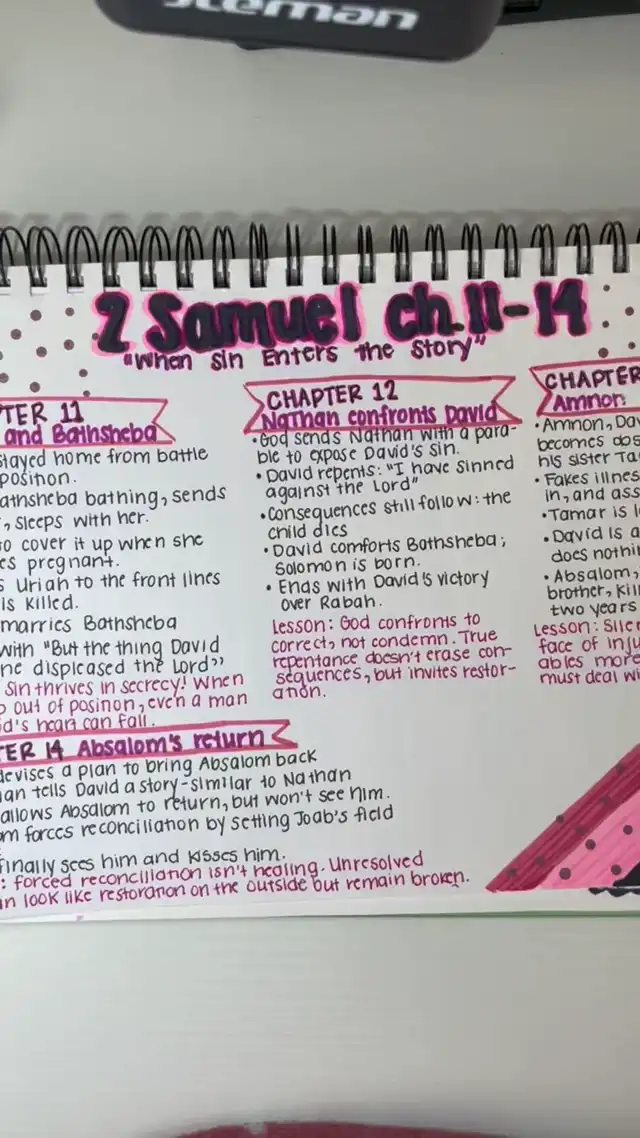 steman
2 Samuel ch.11-14
"When Sin Enters the Story"
TER 11
and Bathsheba
stayed home from battle
position.
athsheba bathing, sends
, sleeps with her.
to cover it up when she
es pregnant.
s Uriah to the front lines
is killed.
marries Bathsheba
with "But the thing David
ne displeased the Lord"
Sin thrives in secrecy! When
out of position, even a man
d's heart can fall.
CHAPTER 12
Nathan confronts David
•God sends Nathan with a para-
ble to expose David's sin.
•David repents: "I have sinned
against the Lord"
•Consequences still follow: the
child dies
•David comforts Bathsheba;
Solomon is born.
•Ends with David's victory
over Rabah.
Lesson: God confronts to
correct, not condemn. True
repentance doesn't erase con-
sequences, but invites restor-
ation.
CHAPTER
Amnon
•Amnon, Dav
becomes obs
his sister Ta
•Fakes illnes
in, and ass
•Tamar is l
•David is a
does nothi
•Absalom,
brother, kil
two years
Lesson: Sile
face of inju
ables more
must deal wi
TER 14 Absalom's return
devises a plan to bring Absalom back
an tells David a story-similar to Nathan
allows Absalom to return, but won't see him.
om forces reconciliation by setting Joab's field
finally sees him and kisses him.
: forced reconciliation isn't healing. Unresolved
n look like restoration on the outside but remain broken.